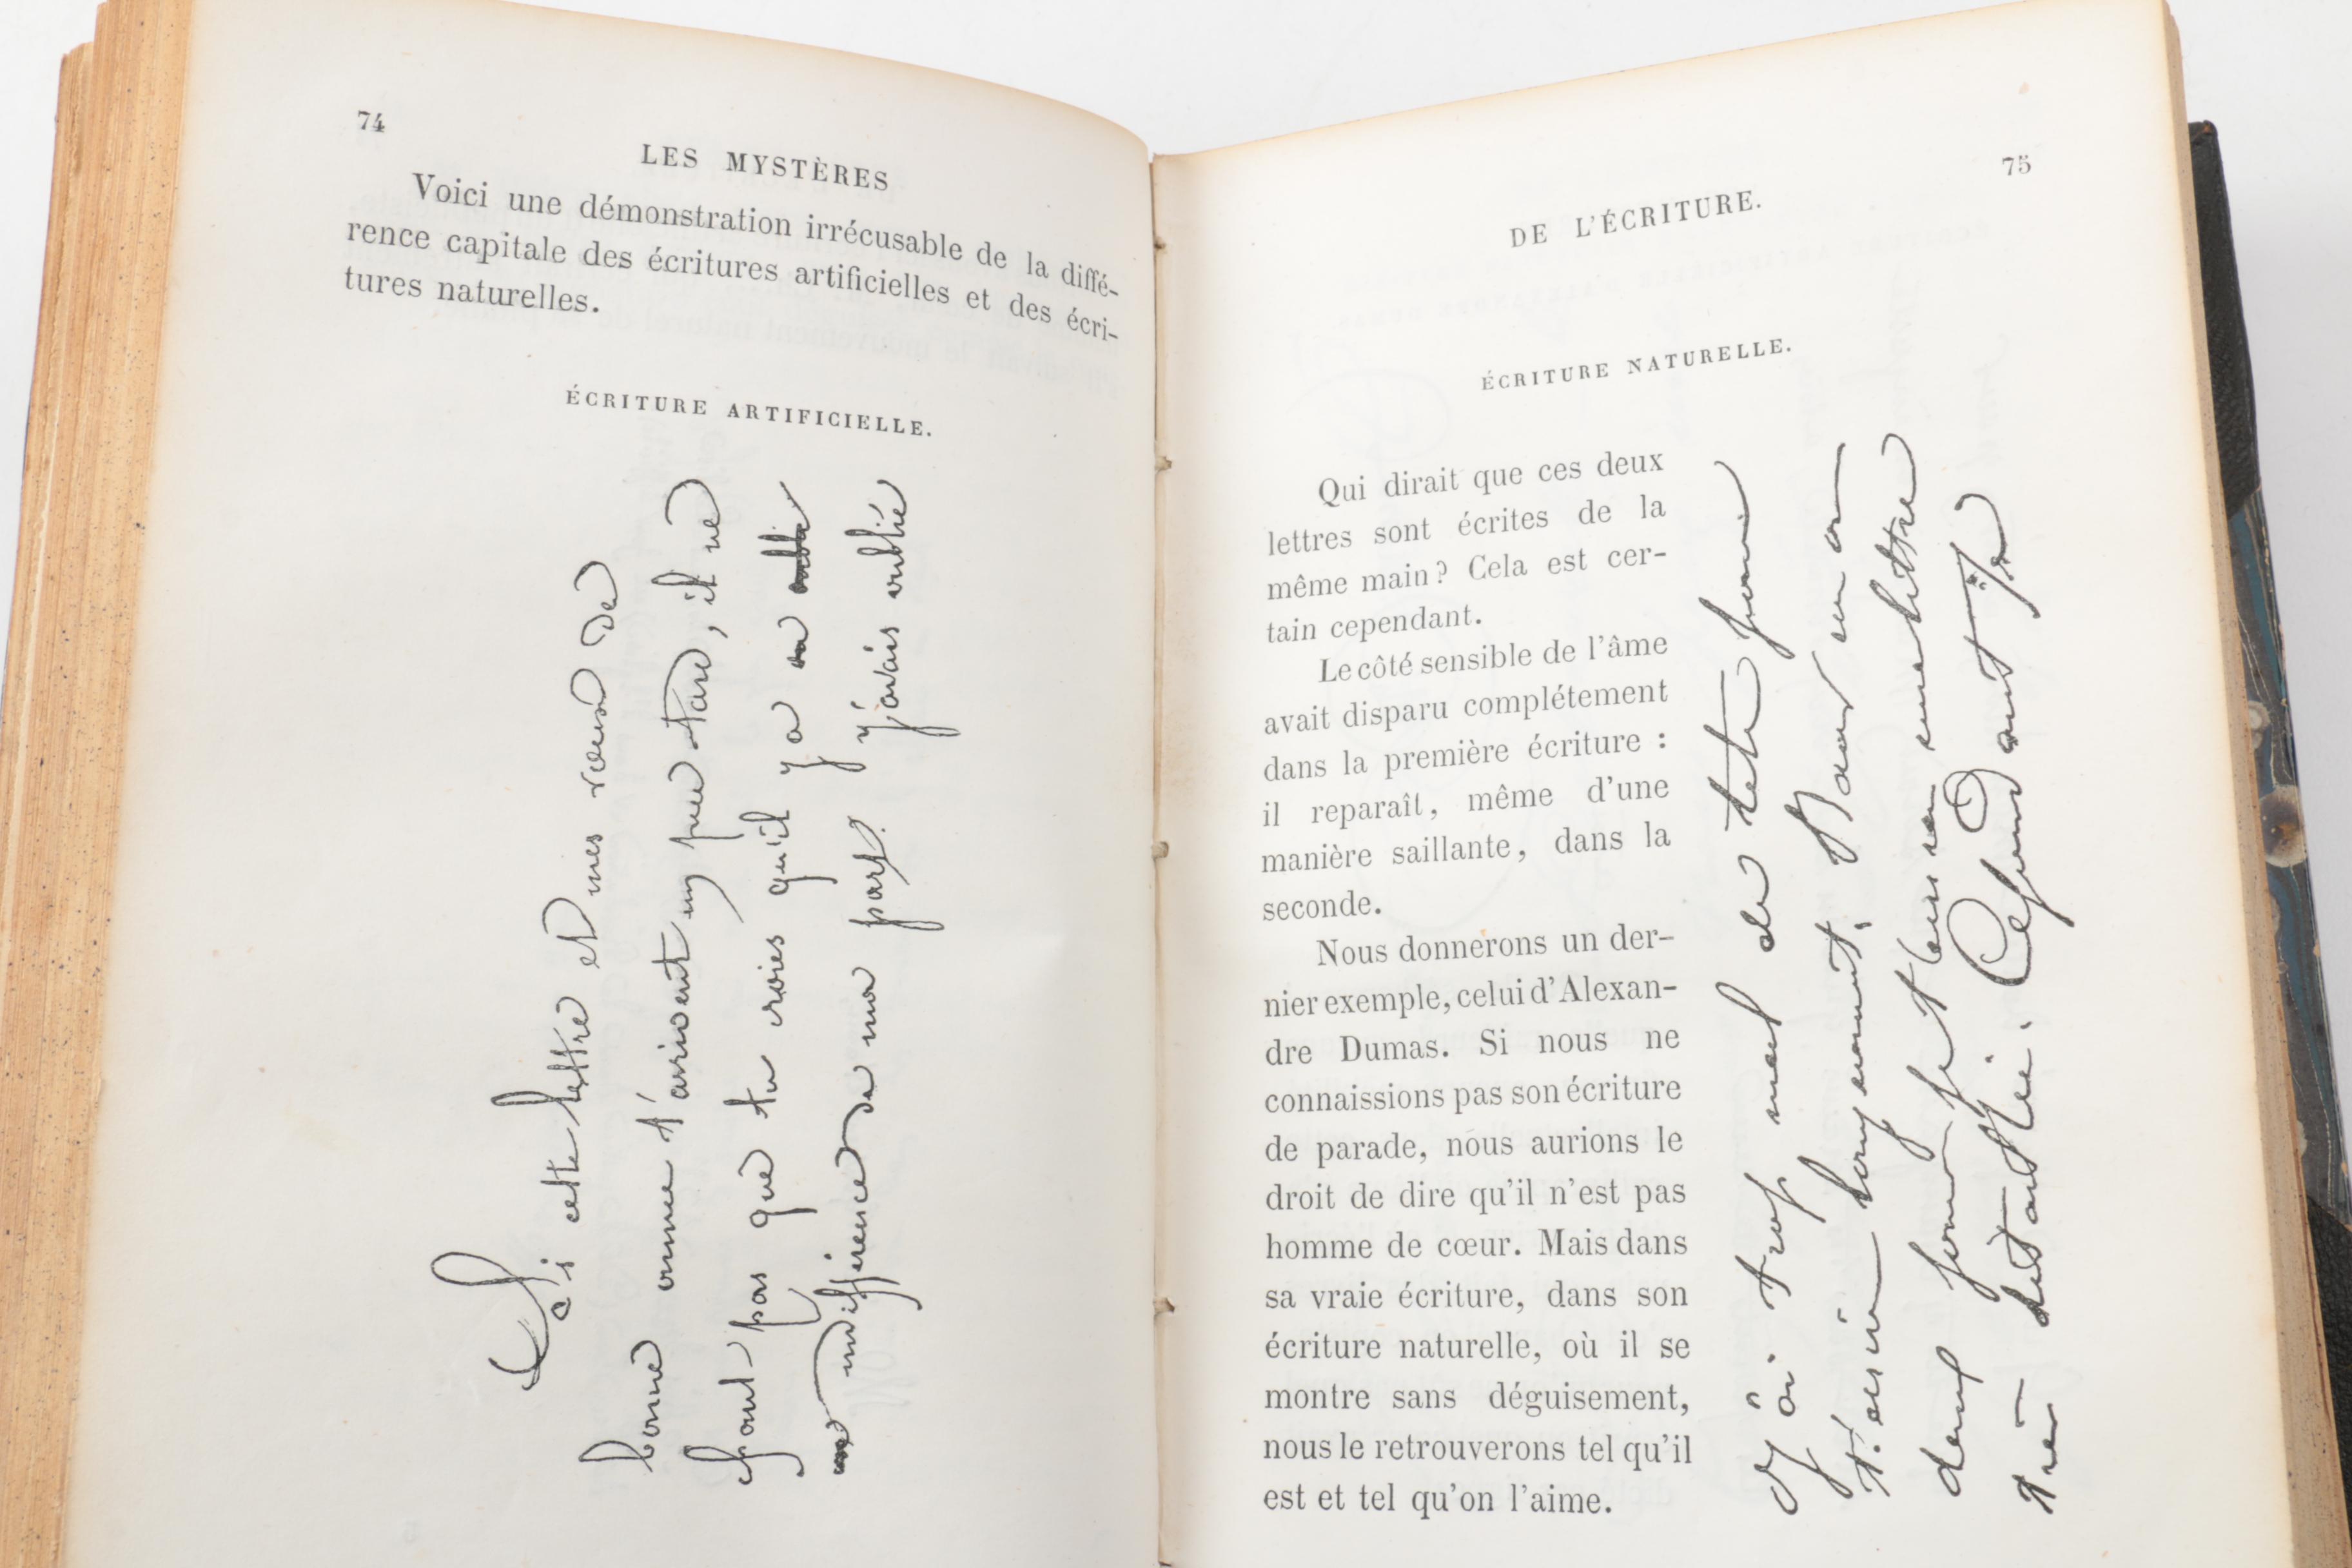 74
LES MYSTÈRES
Voici une démonstration irrécusable de la diffé-
rence capitale des écritures artificielles et des écri-
tures naturelles.
ÉCRITURE ARTIFICIELLE.
Si cette lettre et mes vœux de
bonne année t'arrivent un peu tard, il ne
faut pas que tu croies qu'il y a eu
indifférence de ma part. J'avais oublié
75
DE L'ÉCRITURE.
ÉCRITURE NATURELLE.
Qui dirait que ces deux
lettres sont écrites de la
même main? Cela est cer-
tain cependant.
Le côté sensible de l'âme
avait disparu complétement
dans la première écriture :
il reparaît, même d'une
manière saillante, dans la
seconde.
Nous donnerons un der-
nier exemple, celui d'Alexan-
dre Dumas. Si nous ne
connaissions pas son écriture
de parade, nous aurions le
droit de dire qu'il n'est pas
homme de cœur. Mais dans
sa vraie écriture, dans son
écriture naturelle, où il se
montre sans déguisement,
nous le retrouverons tel qu'il
est et tel qu'on l'aime.
J'ai trop mal de tête pour
t'écrire longuement. Dans un ou
deux jours je t'écrirai une lettre
très détaillée. Cependant je